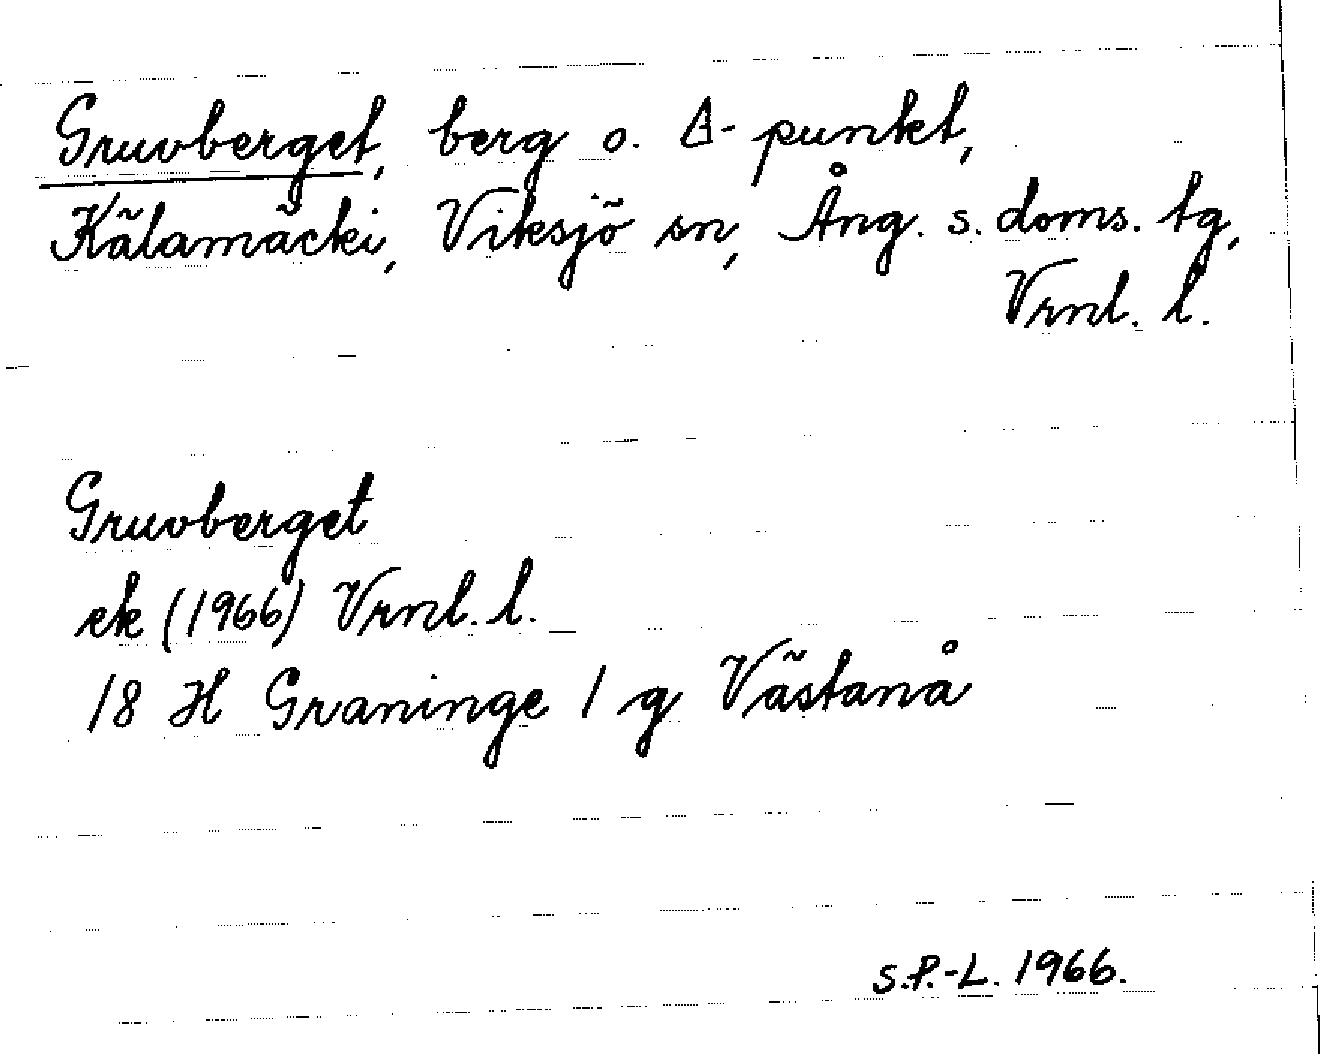 Gruvberget, berg o. Δ-punkt,
Kälamäcki, Viksjö sn, Ång. s. doms. tg,
Vrnl. l.
Gruvberget
ek (1966) Vrnl. l.
18 H Graninge 1 g Västanå
S.P.-L. 1966.